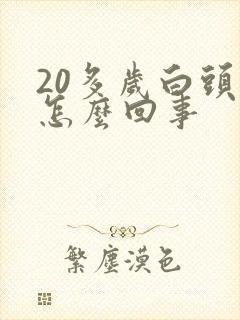 20多歲白頭
怎麼回事
繁塵漠色